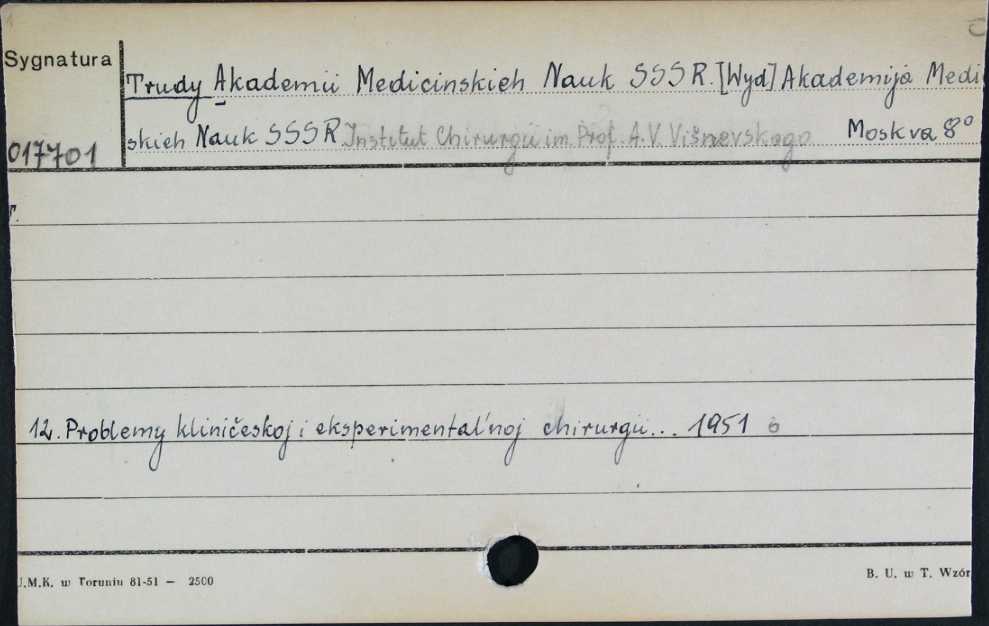 Sygnatura
Trudy Akademii Medicinskich Nauk SSSR. [Wyd] Akademija Medi
skich Nauk SSSR Institut Chirurgii im. Prof. A.V. Višnevskogo Moskva 8°
017701
T.
12. Problemy kliničeskoj i eksperimental'noj chirurgii... 1951 6
U.M.K. w Toruniu 81-51 — 2500
B. U. w T. Wzór